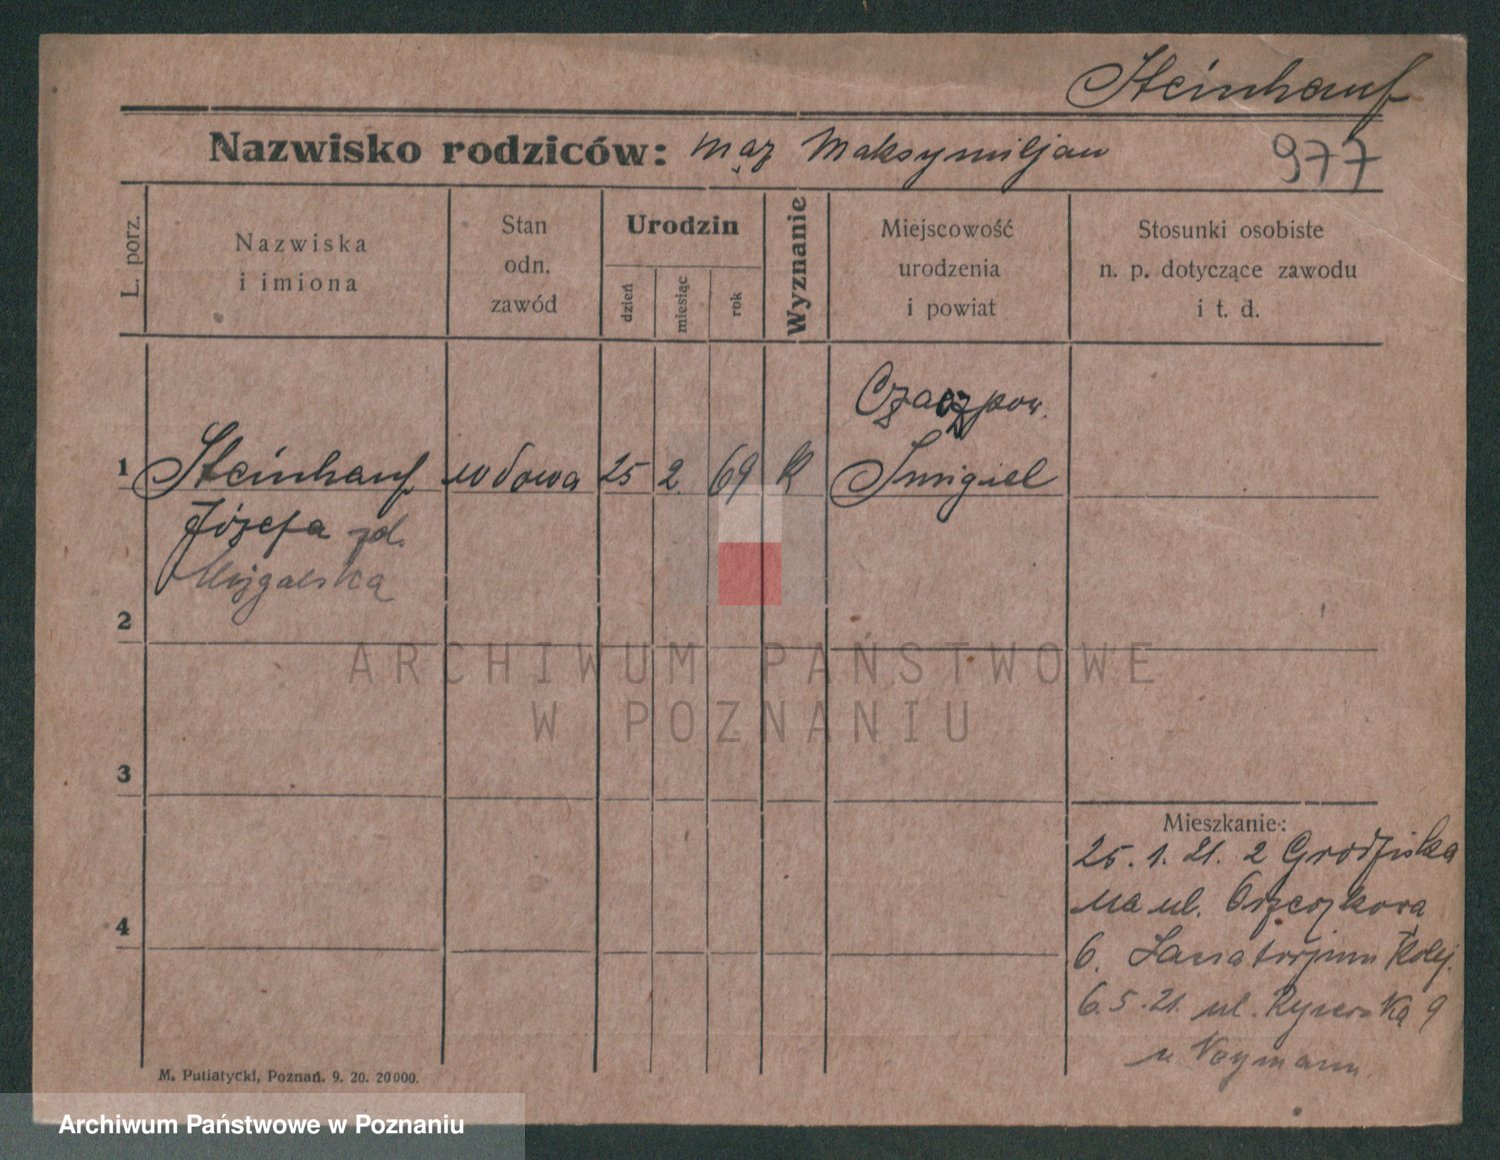 Steinhauf
Nazwisko rodziców: mąż Maksymiljan
977
L. porz.
Nazwiska
i imiona
Stan
odn.
zawód
Urodzin
dzień
miesiąc
rok
Wyznanie
Miejscowość
urodzenia
i powiat
Stosunki osobiste
n. p. dotyczące zawodu
i t. d.
Czacz pow.
1 Steinhauf wdowa 25 2 69 k Śmigiel
Józefa zd.
2
3
4
ARCHIWUM PAŃSTWOWE
W POZNANIU
Mieszkanie:
25. 1. 21. z Grodziska
na ul. Orzeszkową
6. Sanatorjum Kolej.
6. 5. 21. ul. 9
u
M. Putiatycki, Poznań. 9. 20. 20000.
Archiwum Państwowe w Poznaniu